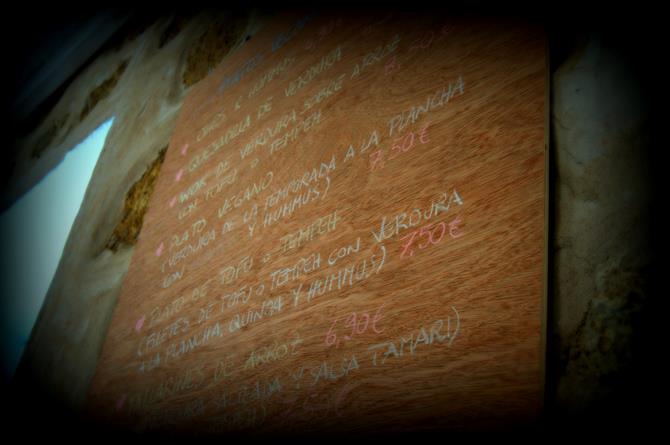 PLATO
QUESADILLA DE VERDURA
WOK DE VERDURA SOBRE ARROZ 8,50€
CON TOFU O TEMPEH
PLATO VEGANO
(VERDURA DE LA TEMPORADA A LA PLANCHA
CON Y HUMMUS) 7,50€
PLATO DE TOFU O TEMPEH
(FILETES DE TOFU O TEMPEH CON VERDURA
A LA PLANCHA, QUINOA Y HUMMUS) 7,50€
TALLARINES DE ARROZ 6,90€
Y SALSA TAMARI)